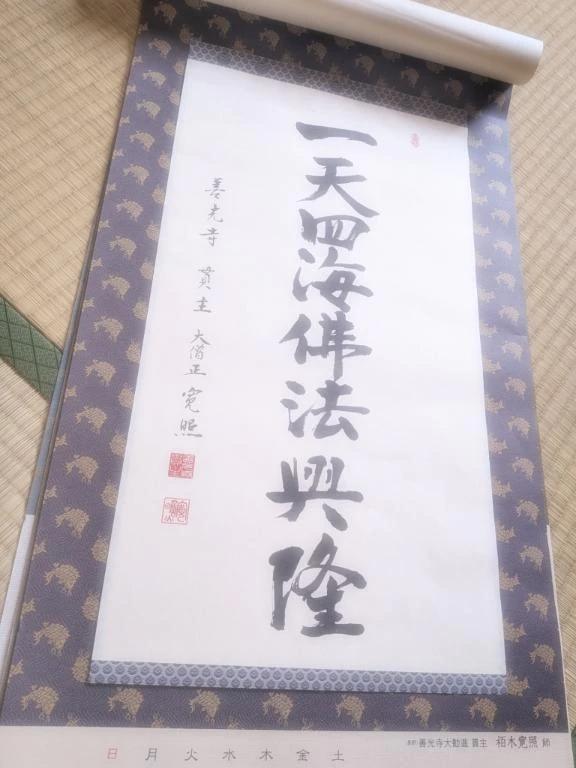 一天四海佛法興隆
善光寺 貫主 大僧正 寛照
善光寺大勧進 貫主 栢木寛照 師
日 月 火 水 木 金 土